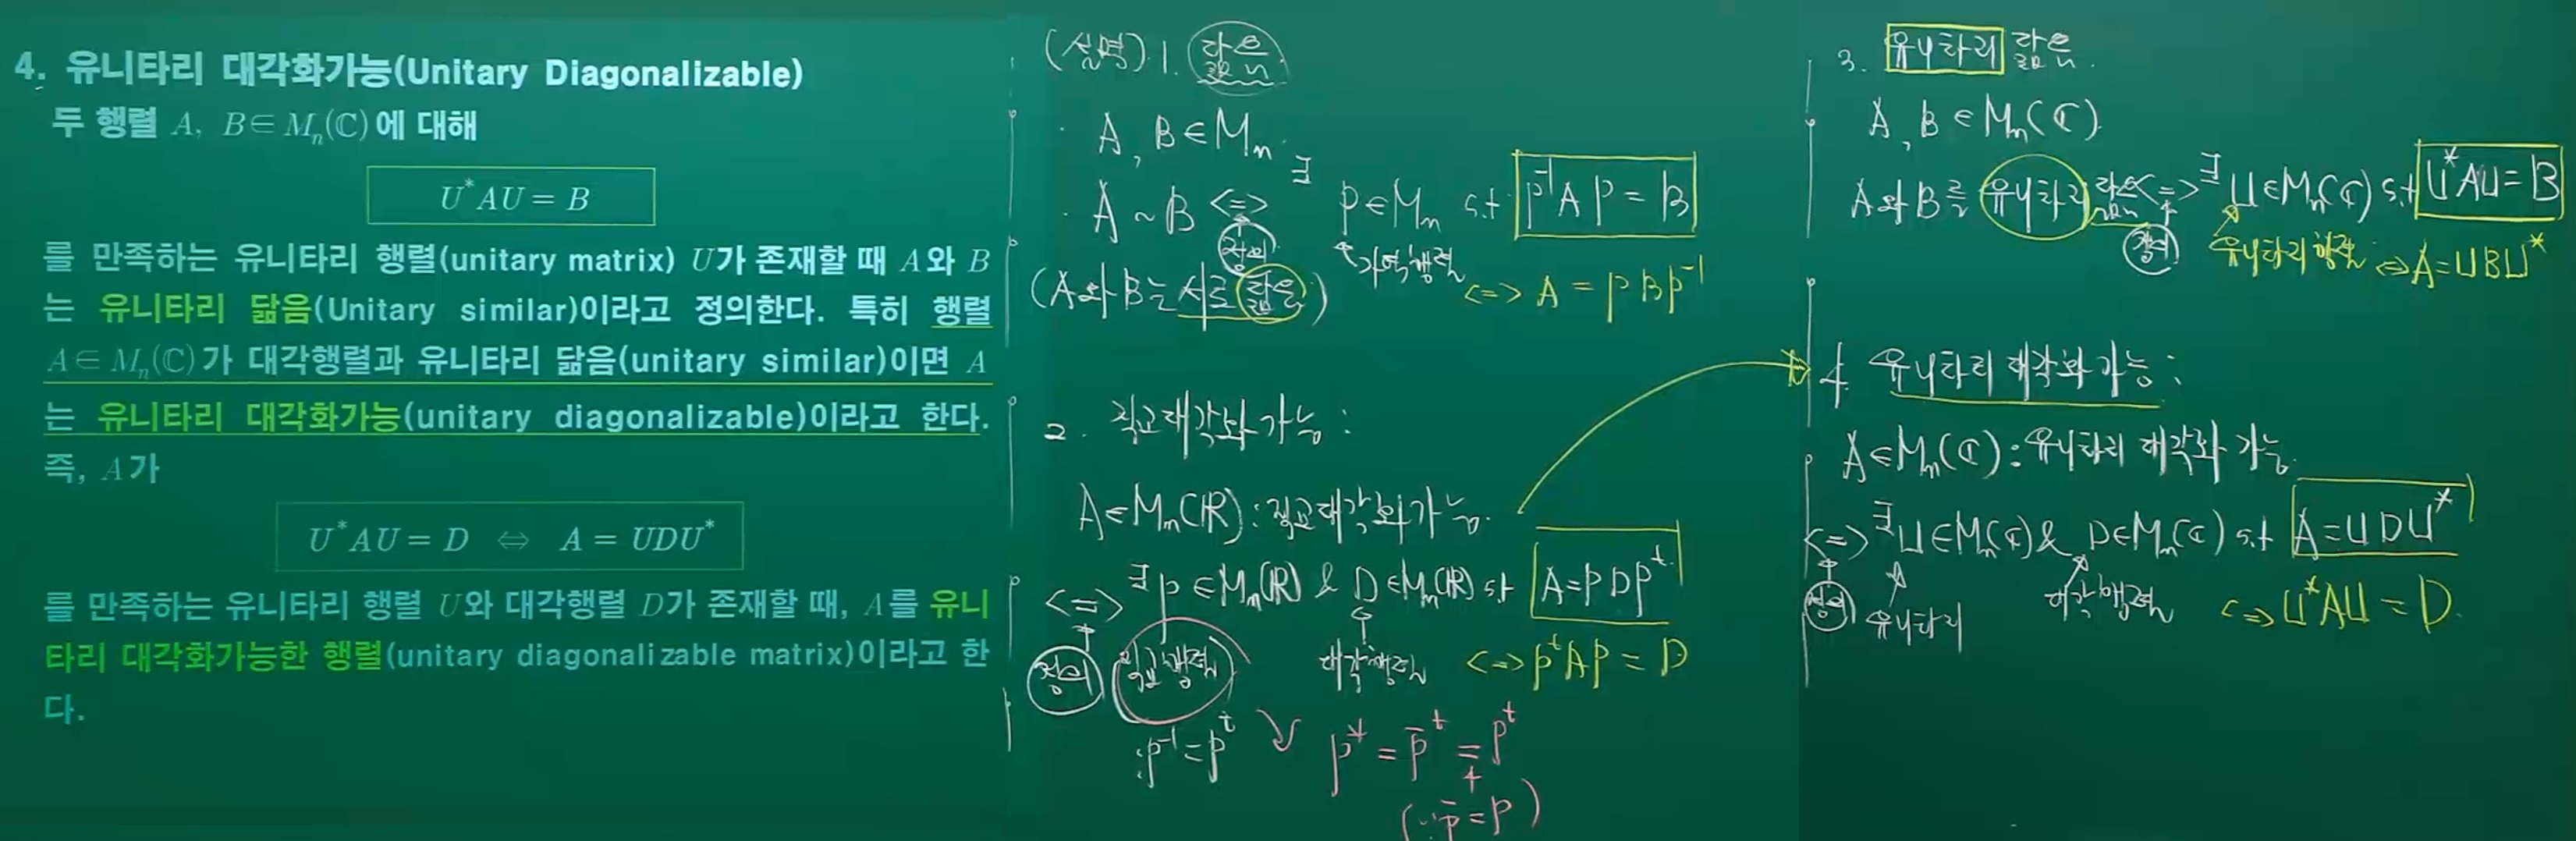 4. 유니타리 대각화가능(Unitary Diagonalizable)
두 행렬 A, B∈M_n(ℂ)에 대해
U*AU = B
를 만족하는 유니타리 행렬(unitary matrix) U가 존재할 때 A와 B
는 유니타리 닮음(Unitary similar)이라고 정의한다. 특히 행렬
A∈M_n(ℂ)가 대각행렬과 유니타리 닮음(unitary similar)이면 A
는 유니타리 대각화가능(unitary diagonalizable)이라고 한다.
즉, A가
U*AU = D ⇔ A = UDU*
를 만족하는 유니타리 행렬 U와 대각행렬 D가 존재할 때, A를 유니
타리 대각화가능한 행렬(unitary diagonalizable matrix)이라고 한
다.
(설명) 1. 닮은
A, B∈M_n
A ~ B <=> ∃ P∈M_n s.t P⁻¹AP = B
정의
가역행렬
(A와 B는 서로 닮은)
<=> A = PBP⁻¹
2. 직교대각화가능 :
A∈M_n(ℝ) : 직교대각화가능.
<=> ∃P∈M_n(ℝ) & D∈M_n(ℝ) s.t A=PDP^t
정의 직교행렬 대각행렬 <=> P^tAP = D
: P⁻¹=P^t
P* = P̄^t = P^t
(∵ P̄=P)
3. 유니타리 닮은.
A, B∈M_n(ℂ).
A와 B를 유니타리 닮은 <=> ∃U∈M_n(ℂ) s.t U*AU=B
정의 유니타리 행렬 <=> A=UBU*
4. 유니타리 대각화가능 :
A∈M_n(ℂ) : 유니타리 대각화 가능.
<=> ∃U∈M_n(ℂ) & D∈M_n(ℂ) s.t A=UDU*
정의 유니타리 대각행렬 <=> U*AU = D.